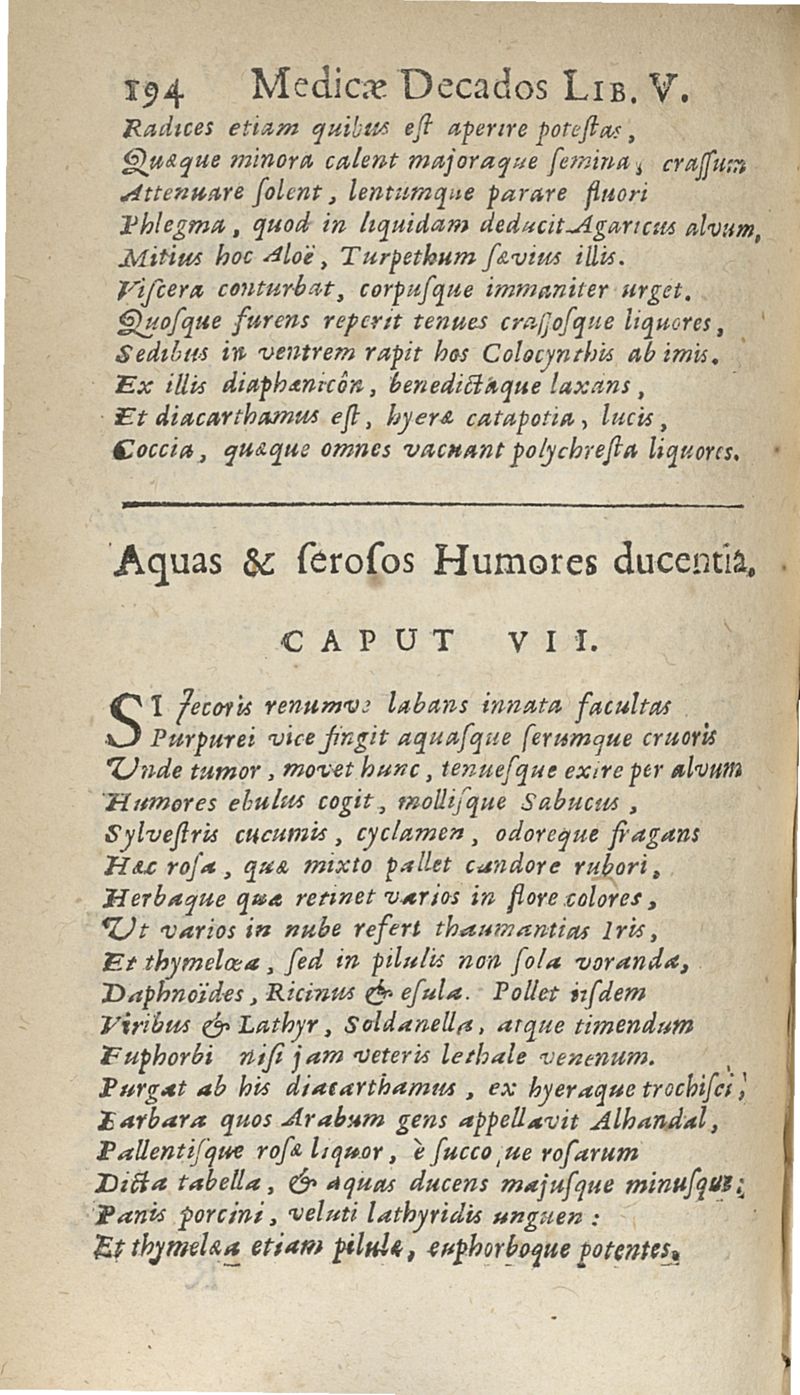 194 Medicæ Decados LIB. V.
Radices etiam quibus eſt aperire poteſtas,
Quæque minora calent majoraque ſemina, craſſum
Attenuare ſolent, lentumque parare fluori
Phlegma, quod in liquidam deducit Agaricus alvum,
Mitius hoc Aloë, Turpethum ſævius illis.
Viſcera conturbat, corpuſque immaniter urget.
Quoſque furens reperit tenues craſſoſque liquores,
Sedibus in ventrem rapit hos Colocynthis ab imis.
Ex illis diaphænicôn, benedictaque laxans,
Et diacarthamus eſt, hyeræ catapotia, lucis,
Coccia, quæque omnes vacuant polychreſta liquores.
Aquas & ſeroſos Humores ducentia.
CAPUT VII.
SI Jecoris renumve labans innata facultas
Purpurei vice fingit aquaſque ſerumque cruoris
Unde tumor, movet hunc, tenueſque exire per alvum
Humores ebulus cogit, molliſque Sabucus,
Sylveſtris cucumis, cyclamen, odoreque fragans
Hæc roſa, quæ mixto pallet candore rubori,
Herbaque quæ retinet varios in flore colores,
Ut varios in nube refert thaumantias Iris,
Et thymelœa, ſed in pilulis non ſola voranda,
Daphnoïdes, Ricinus & eſula. Pollet iiſdem
Viribus & Lathyr, Soldanella, atque timendum
Euphorbi niſi jam veteris lethale venenum.
Purgat ab his diacarthamus, ex hyeraque trochiſci,
Barbara quos Arabum gens appellavit Alhandal,
Pallentiſque roſæ liquor, è ſucco ue roſarum
Dicta tabella, & aquas ducens majuſque minuſque;
Panis porcini, veluti lathyridis unguen:
Et thymelæa etiam pilulæ, euphorboque potentes.